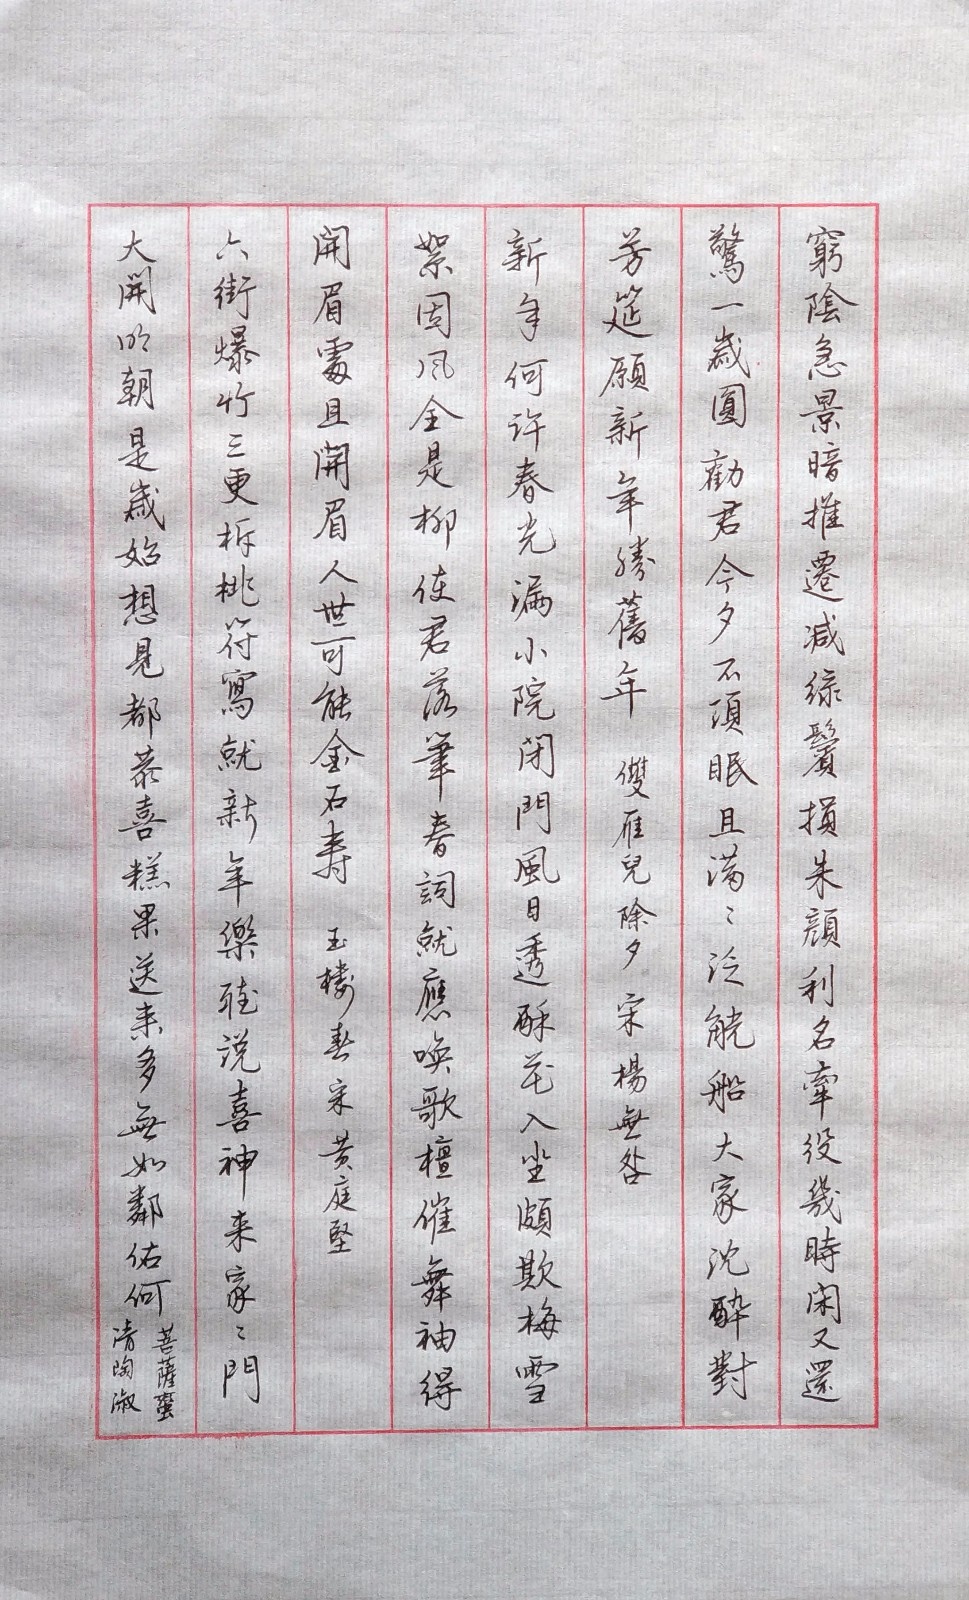 窮陰急景暗推遷減綠鬢損朱顏利名牽役幾時閑又還
驚一歲圓勸君今夕不須眠且滿〻泛觥船大家沈醉對
芳筵願新年勝舊年 雙雁兒除夕宋楊無咎
新年何許春光漏小院閉門風日透酥花入坐頗欺梅雪
絮因風全是柳使君落筆春詞就應喚歌檀催舞袖得
開眉處且開眉人世可能金石壽 玉樓春宋黃庭堅
六街爆竹三更柝桃符寫就新年樂聽說喜神來家〻門
大開明朝是歲始想見都恭喜糕果送來多無如鄰佑何
菩薩蠻
清陶淑